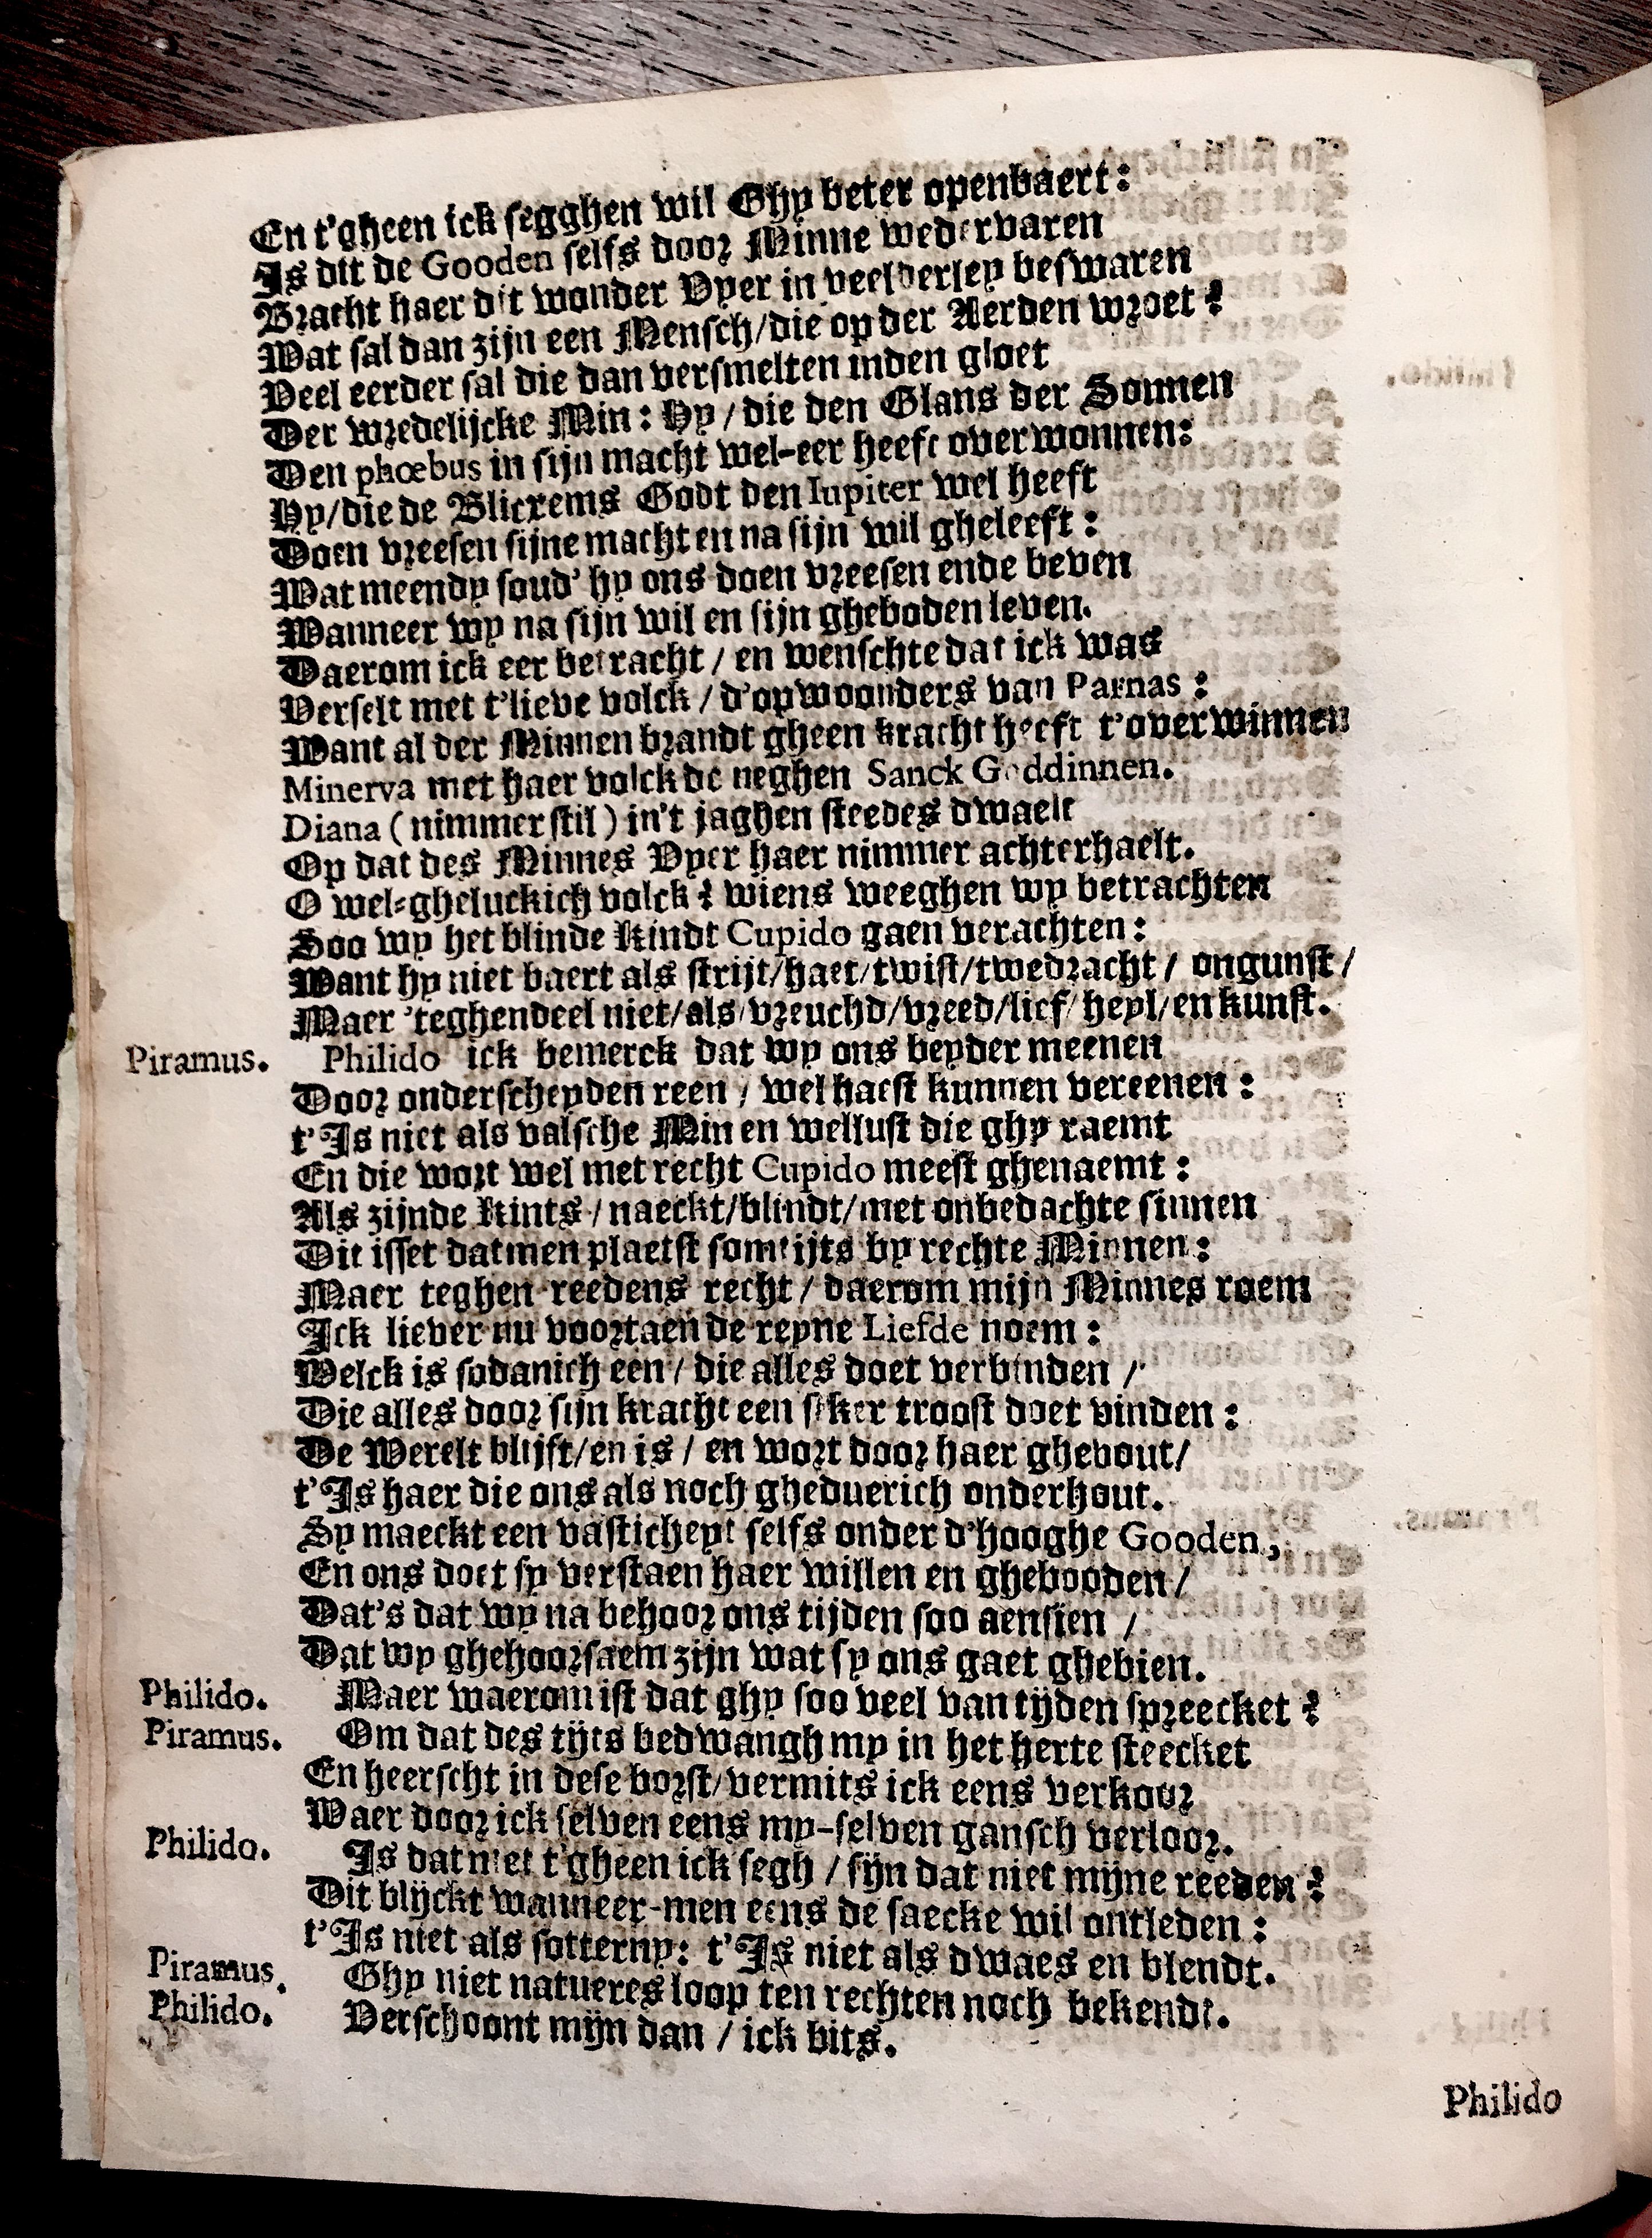 En t'gheen ick segghen wil Ghy beter openbaert:
Is dit de Gooden selfs door Minne wedervaren
Bracht haer dit wonder Vyer in veelderley beswaren
Wat sal dan zijn een Mensch/die op der Aerden wroet?
Veel eerder sal die dan versmelten inden gloet
Der wredelijcke Min: Hy/die den Glans der Sonnen
Den phœbus in sijn macht wel-eer heeft overwonnen:
Hy/die de Blicxems Godt den Iupiter wel heeft
Doen vreesen sijne macht en na sijn wil gheleeft:
Wat meendy soud' hy ons doen vreesen ende beven
Wanneer wy na sijn wil en sijn gheboden leven.
Daerom ick eer betracht/en wenschte dat ick was
Verselt met t'lieve volck/d'opwoonders van Parnas:
Want al der Minnen brandt gheen kracht heeft t'overwinnen
Minerva met haer volck de neghen Sanck Goddinnen.
Diana (nimmer stil) in't jaghen steedes dwaelt
Op dat des Minnes Vyer haer nimmer achterhaelt.
O wel-gheluckich volck? wiens weeghen wy betrachten
Soo wy het blinde Kindt Cupido gaen verachten:
Want hy niet baert als strijt/haet/twist/twedracht/ongunst/
Maer 'teghendeel niet/als/vreuchd/vreed/lief/heyl/en kunst.
Piramus. Philido ick bemerck dat wy ons beyder meenen
Door onderscheyden reen/wel haest kunnen vereenen:
t'Is niet als valsche Min en wellust die ghy raemt
En die wort wel met recht Cupido meest ghenaemt:
Als zijnde Kints/naeckt/blindt/met onbedachte sinnen
Dit isset datmen plaetst somtijts by rechte Minnen:
Maer teghen reedens recht/daerom mijn Minnes roem
Ick liever nu voortaen de reyne Liefde noem:
Welck is sodanich een/die alles doet verbinden/
Die alles door sijn kracht een seker troost doet vinden:
De Werelt blijft/en is/en wort door haer ghebout/
t'Is haer die ons als noch gheduerich onderhout.
Sy maeckt een vasticheyt selfs onder d'hooghe Gooden,
En ons doet sy verstaen haer willen en ghebooden/
Dat's dat wy na behoor ons tijden soo aensien/
Dat wy ghehoorsaem zijn wat sy ons gaet ghebien.
Philido. Maer waerom ist dat ghy soo veel van tijden spreecket?
Piramus. Om dat des tijts bedwangh my in het herte steecket
En heerscht in dese borst/vermits ick eens verkoor
Waer door ick selven eens my-selven gansch verloor.
Philido. Is dat niet t'gheen ick segh/sijn dat niet mijne reeden?
Dit blijckt wanneer-men eens de saecke wil ontleden:
t'Is niet als sotterny: t'Is niet als dwaes en blendt.
Piramus. Ghy niet natueres loop ten rechten noch bekendt.
Philido. Verschoont mijn dan/ick bits.
Philido